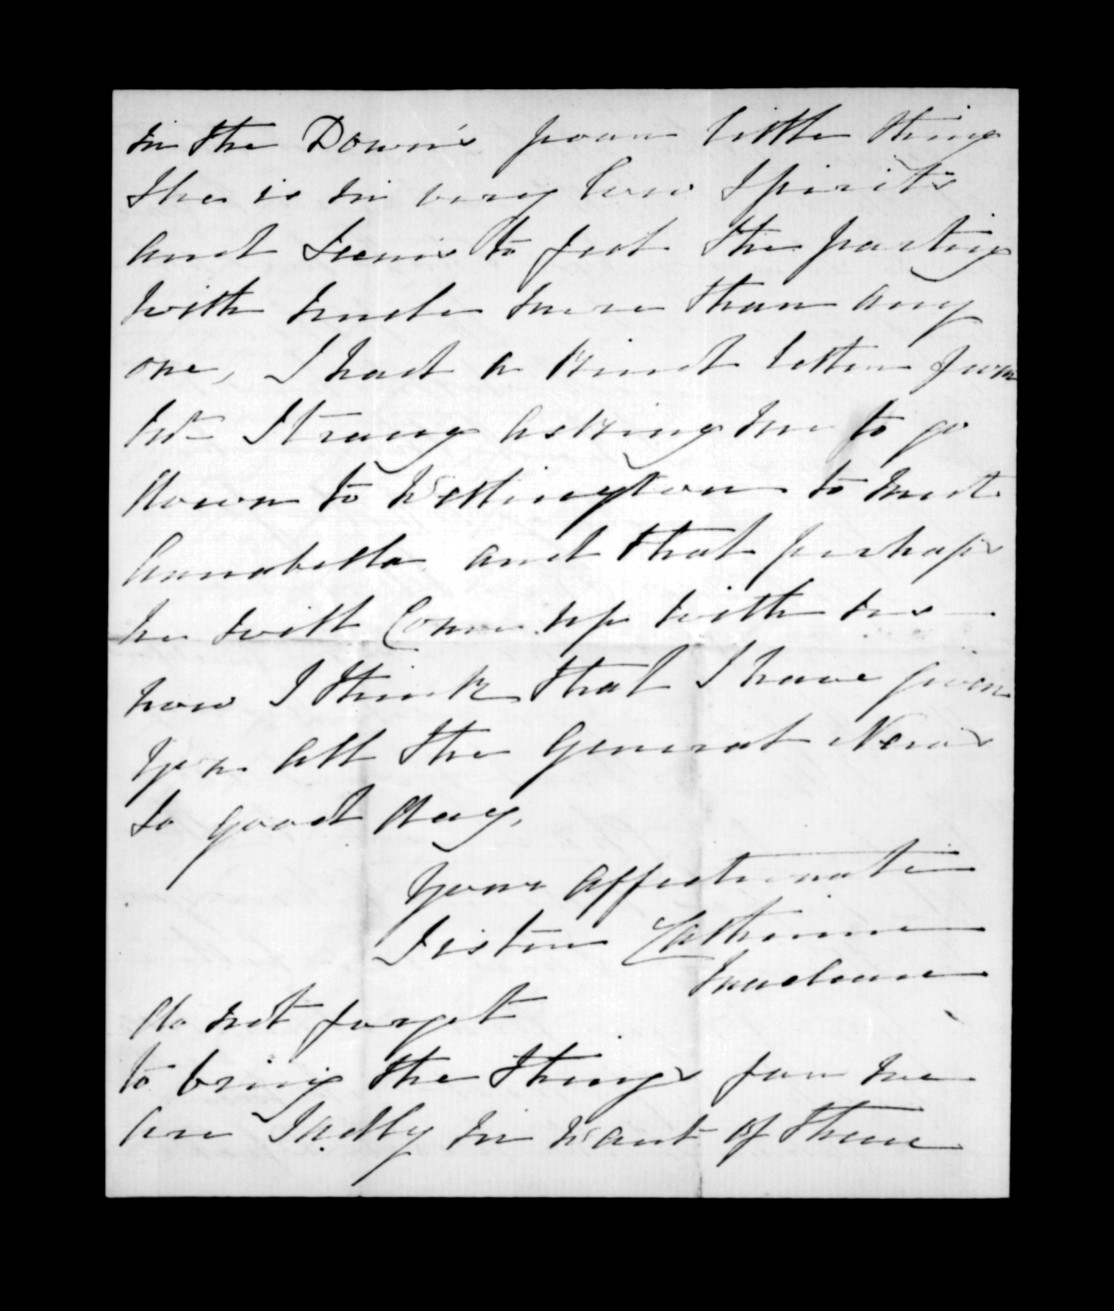 in the Down's poor little thing
She is in very low Spirits
and Seems to feel the parting
with much more than any
one, I had a kind letter from
Mr Strang asking me to go
down to Wellington to meet
Annabella and that perhaps
he will Come up with us
now I think that I have given
you all the General News
So good day,
Your affectionate
Sister Catherine
Maclean
do not forget
to bring the things for me
Am Sadly in want of them